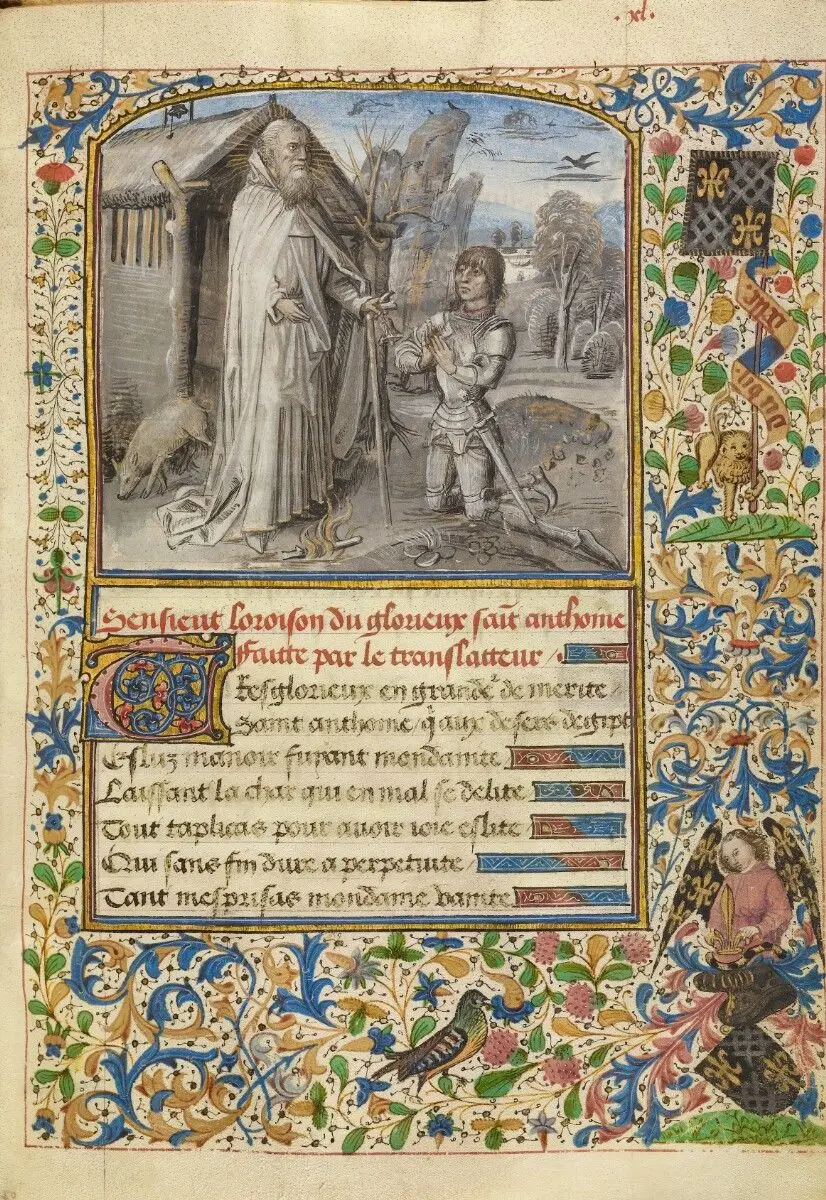 .xl.
Sensieut loroison du glorieux saīt anthoine
faitte par le translateur /
Tresglorieux en grande de merite /
Saint anthoine / q aux desers degipte
Esluz manoir fuyant mondainite
Laissant la char qui en mal se delite
Tout taplicas pour auoir voie eslite
Qui sans fin dure a perpetuite
Tant mesprisas mondaine vanite